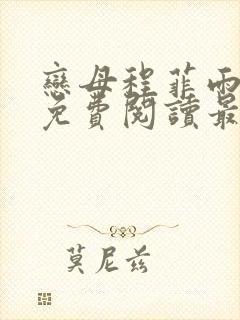 戀母程菲雨
免費閱讀最
莫尼兹